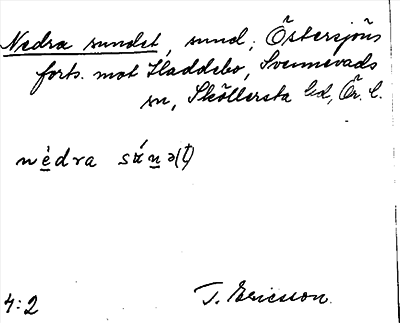 Nedra sundet, sund; Östersjöns
forts. mot Haddebo, Svennevads
sn, Sköllersta hd, Ör. l.
nèdra sún̲ə(t)
4:2 T. Ericsson.